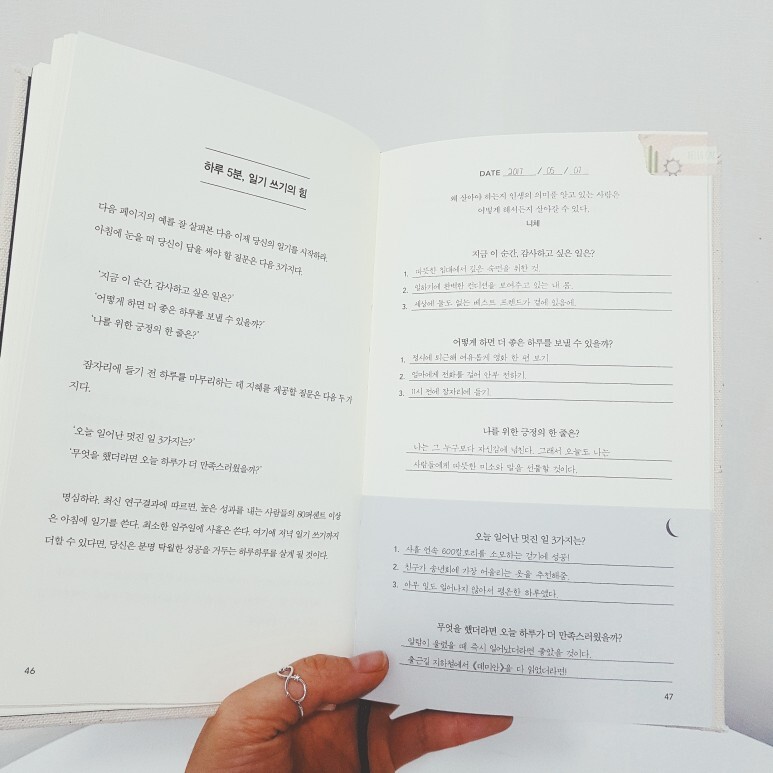 하루 5분, 일기 쓰기의 힘
다음 페이지의 예를 잘 살펴본 다음 이제 당신의 일기를 시작하라.
아침에 눈을 떠 당신이 답을 써야 할 질문은 다음 3가지다.
‘지금 이 순간, 감사하고 싶은 일은?’
‘어떻게 하면 더 좋은 하루를 보낼 수 있을까?’
‘나를 위한 긍정의 한 줄은?’
잠자리에 들기 전 하루를 마무리하는 데 지혜를 제공할 질문은 다음 두 가
지다.
‘오늘 일어난 멋진 일 3가지는?’
‘무엇을 했더라면 오늘 하루가 더 만족스러웠을까?’
명심하라. 최신 연구결과에 따르면, 높은 성과를 내는 사람들의 80퍼센트 이상
은 아침에 일기를 쓴다. 최소한 일주일에 사흘은 쓴다. 여기에 저녁 일기 쓰기까지
더할 수 있다면, 당신은 분명 탁월한 성공을 거두는 하루하루를 살게 될 것이다.
46
DATE 2017 / 05 / 07
왜 살아야 하는지 인생의 의미를 알고 있는 사람은
어떻게 해서든지 살아갈 수 있다.
니체
지금 이 순간, 감사하고 싶은 일은?
1. 따뜻한 침대에서 깊은 숙면을 취한 것.
2. 일하기에 완벽한 컨디션을 보여주고 있는 내 몸.
3. 세상에 둘도 없는 베스트 프렌드가 곁에 있음에.
어떻게 하면 더 좋은 하루를 보낼 수 있을까?
1. 정시에 퇴근해 여유롭게 영화 한 편 보기.
2. 엄마에게 전화를 걸어 안부 전하기.
3. 11시 전에 잠자리에 들기.
나를 위한 긍정의 한 줄은?
나는 그 누구보다 자신감에 넘친다. 그래서 오늘도 나는
사람들에게 따뜻한 미소와 말을 선물할 것이다.
오늘 일어난 멋진 일 3가지는?
1. 사흘 연속 600칼로리를 소모하는 걷기에 성공!
2. 친구가 송년회에 가장 어울리는 옷을 추천해줌.
3. 아무 일도 일어나지 않아서 평온한 하루였다.
무엇을 했더라면 오늘 하루가 더 만족스러웠을까?
알람이 울렸을 때 즉시 일어났더라면 좋았을 것이다.
출근길 지하철에서 《데미안》을 다 읽었더라면!
47